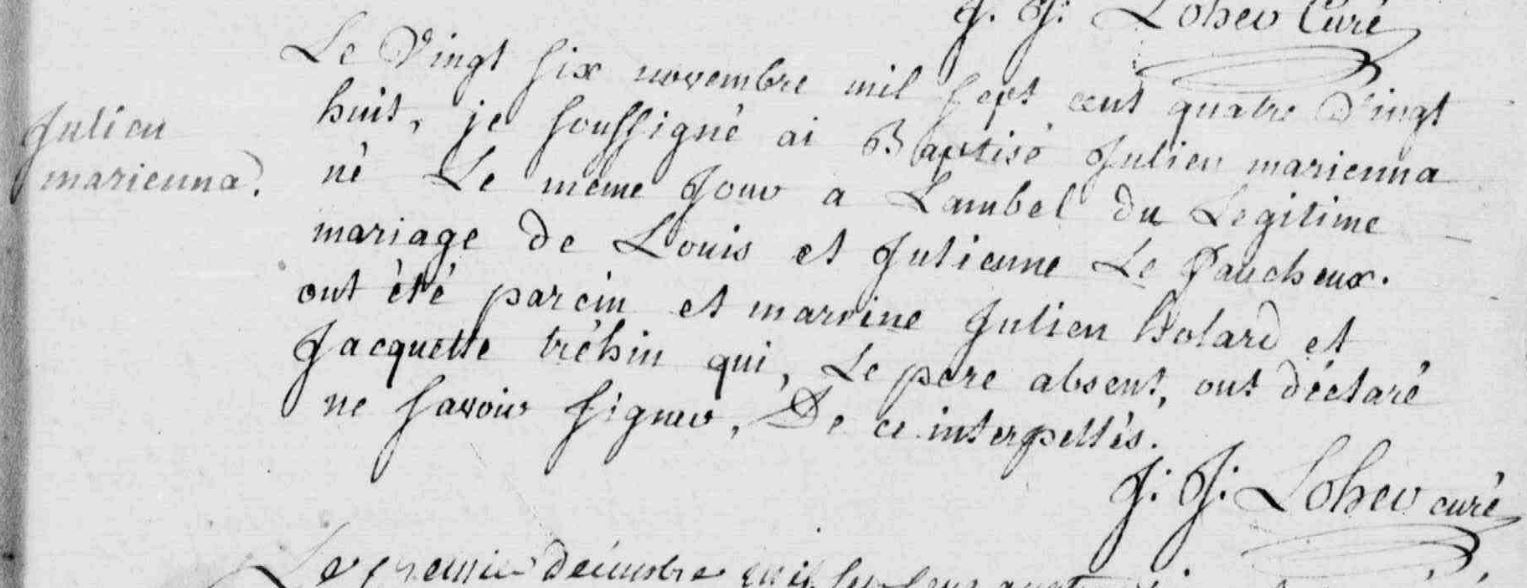 J. J. Loher Curé
Le Vingt six novembre mil sept cent quatre Vingt
huit, je soussigné ai Baptisé Julien marienna
né Le meme Jour a Lambel du Legitime
mariage de Louis et Julienne Le Faucheux.
ont été parein et marine Julien Bolard et
Jacquette tréhin qui, Le pere absent, ont déclaré
ne savoir signer, De ce interpellés.
J. J. Loher curé
Julien
marienna.
Le premier décembre mil sept cent